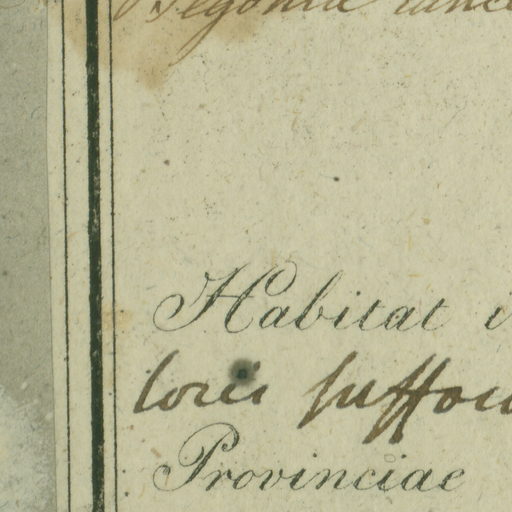 Begonia lance
Habitat i
locis suffoc
Provinciae